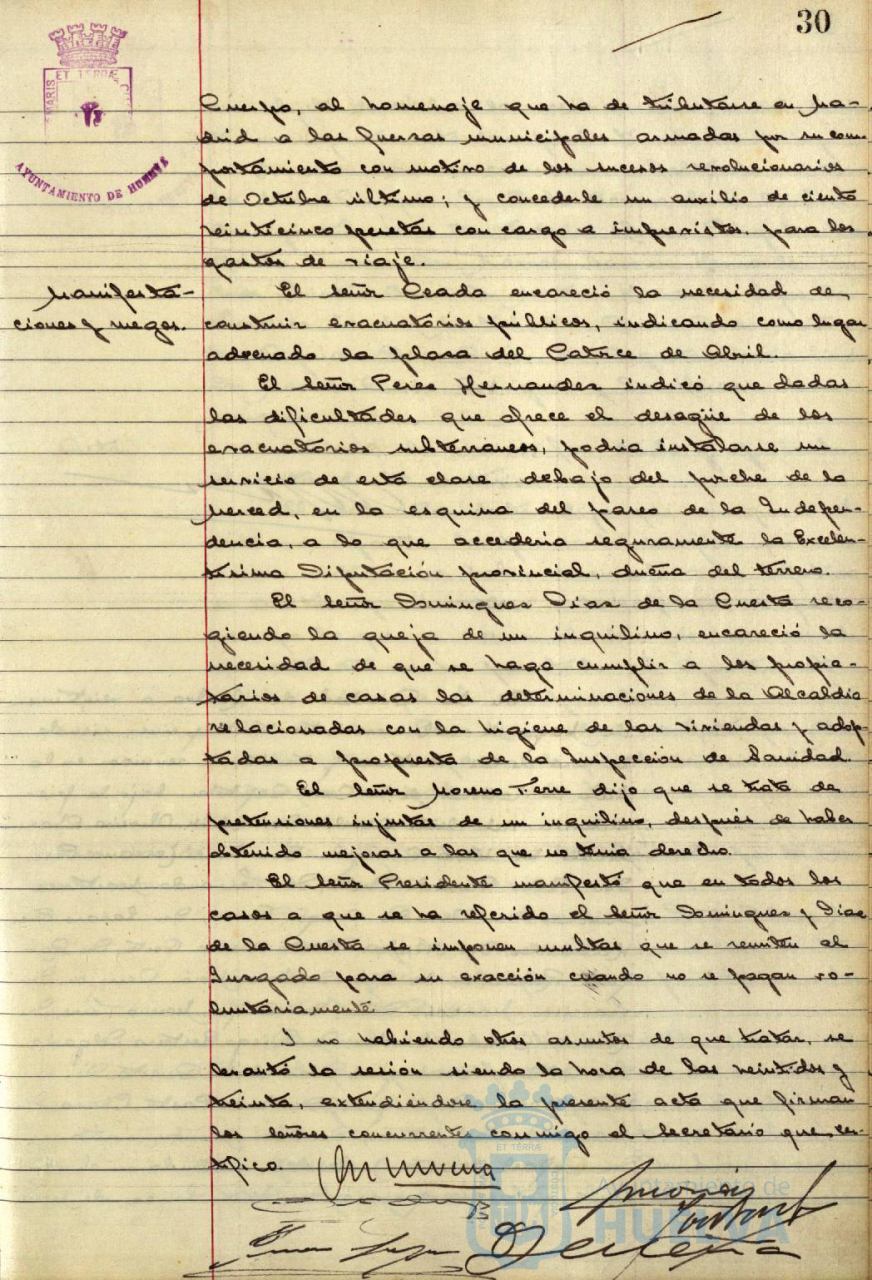 30
MARIS ET TERRÆ
AYUNTAMIENTO DE HUELVA
Cuerpo, al homenaje que ha de tributarse en Ma-
drid a las fuerzas municipales armadas por su com-
portamiento con motivo de los sucesos revolucionarios
de Octubre último; y concederle un auxilio de ciento
veinticinco pesetas con cargo a imprevistos, para los
gastos de viaje.
Manifesta-
ciones y ruegos.
El señor Ceada encareció la necesidad de
construir evacuatorios públicos, indicando como lugar
adecuado la plaza del Catorce de Abril.
El señor Perez Hernandez indicó que dadas
las dificultades que ofrece el desagüe de los
evacuatorios subterraneos, podria instalarse un
servicio de esta clase debajo del porche de la
Merced, en la esquina del paseo de la Indepen-
dencia, a lo que accederia seguramente la Excelen-
tisima Diputación provincial, dueña del terreno.
El señor Dominguez Diaz de la Cuesta reco-
giendo la queja de un inquilino, encareció la
necesidad de que se haga cumplir a los propie-
tarios de casas las determinaciones de la Alcaldia
relacionadas con la higiene de las viviendas y adop-
tadas a propuesta de la Inspección de Sanidad.
El señor Moreno Ferre dijo que se trata de
pretensiones injustas de un inquilino, después de haber
obtenido mejoras a las que no tenia derecho.
El señor Presidente manifestó que en todos los
casos a que se ha referido el señor Dominguez y Diaz
de la Cuesta se imponen multas que se remiten al
Juzgado para su exacción cuando no se pagan vo-
luntariamente.
Y no habiendo otros asuntos de que tratar, se
levantó la sesión siendo la hora de las veintidos y
treinta, extendiéndose la presente acta que firman
los señores concurrentes conmigo el Secretario que cer-
tifico.
ET TERRÆ
Ayuntamiento de
HUELVA